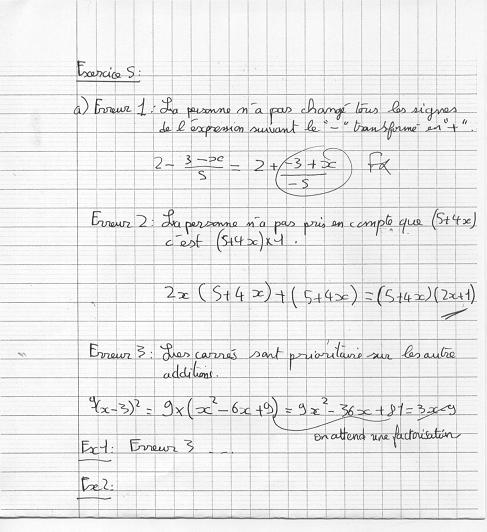 Exercice 5:
a) Erreur 1: La personne n'a pas changé tous les signes
de l'expression suivant le "-" transformé en "+".
2 - \frac{3-x}{5} = 2 + \frac{-3+x}{-5} Fx
Erreur 2: La personne n'a pas pris en compte que (5+4x)
c'est (5+4x)×1.
2x(5+4x)+(5+4x)=(5+4x)(2x+1)
Erreur 3: Les carrés sont prioritaire sur les autre
additions.
9(x-3)² = 9×(x²-6x+9) = 9x²-36x+81=3x-9
on attend une factorisation
Ex1: Erreur 3 ....
Ex2: